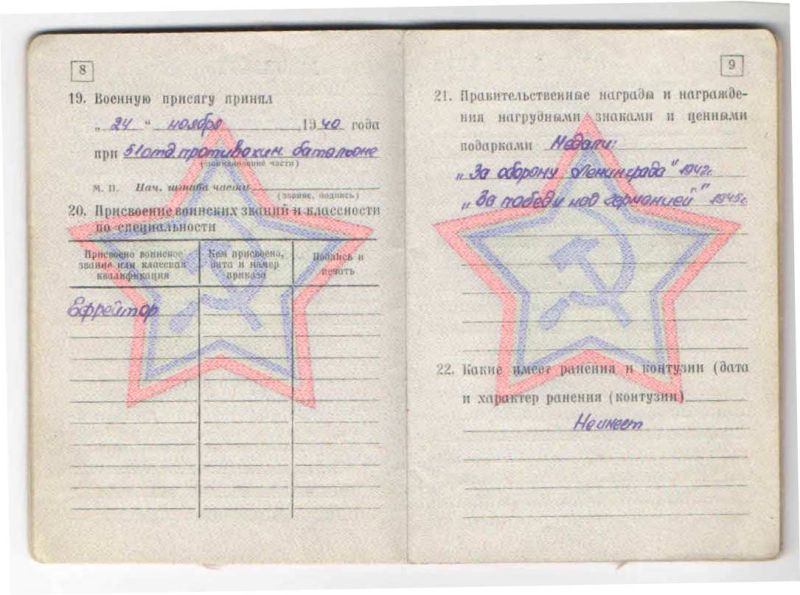 8
19. Военную присягу принял
„ 24 “ ноября 1940 года
при 51 отд. противохим. батальоне
(наименование части)
М. П. Нач. штаба части
(звание, подпись)
20. Присвоение воинских званий и классности
по специальности
Присвоено воинское звание или классная квалификация
Кем присвоено, дата и номер приказа
Подпись и печать
Ефрейтор
9
21. Правительственные награды и награжде-
ния нагрудными знаками и ценными
подарками Медали:
„За оборону Ленинграда" 1942г.
„За победу над Германией" 1945г.
22. Какие имеет ранения и контузии (дата
и характер ранения (контузии)
Не имеет